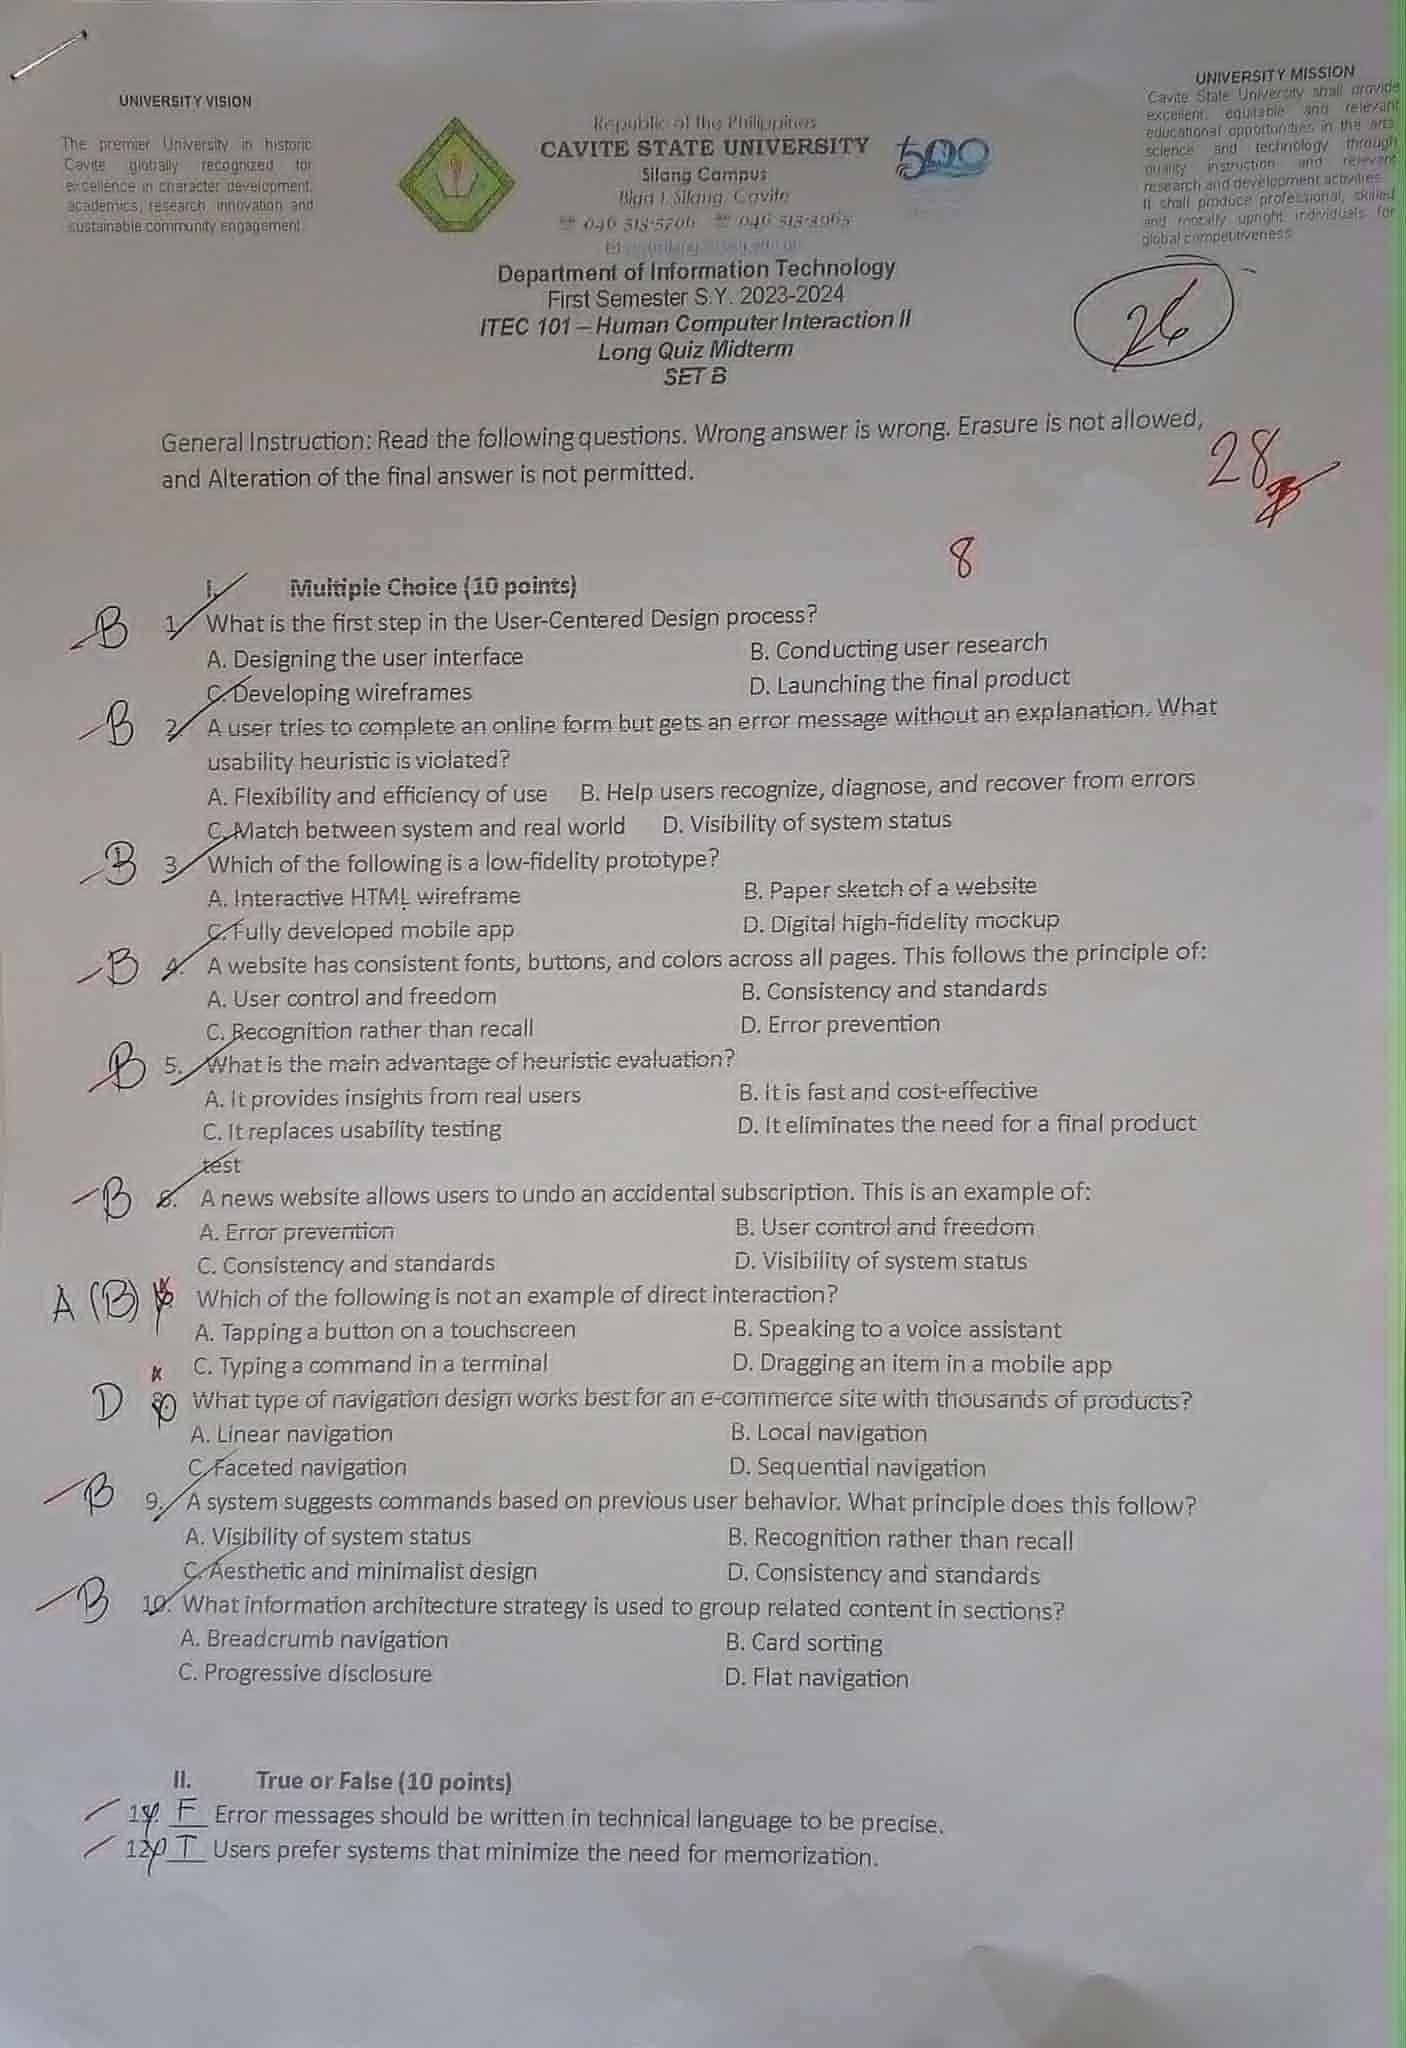 UNIVERSITY VISION
The premier University in historic
Cavite globally recognized for
excellence in character development,
academics, research, innovation and
sustainable community engagement.
Republic of the Philippines
CAVITE STATE UNIVERSITY
Silang Campus
Biga I, Silang, Cavite
500
UNIVERSITY MISSION
Cavite State University shall provide
excellent, equitable and relevant
educational opportunities in the arts,
science and technology through
quality instruction and relevant
research and development activities.
It shall produce professional, skilled
and morally upright individuals for
global competitiveness.
Department of Information Technology
First Semester S.Y. 2023-2024
ITEC 101 – Human Computer Interaction II
Long Quiz Midterm
SET B
26
General Instruction: Read the following questions. Wrong answer is wrong. Erasure is not allowed,
and Alteration of the final answer is not permitted.
28
8
I. Multiple Choice (10 points)
B 1. What is the first step in the User-Centered Design process?
A. Designing the user interface B. Conducting user research
C. Developing wireframes D. Launching the final product
B 2. A user tries to complete an online form but gets an error message without an explanation. What
usability heuristic is violated?
A. Flexibility and efficiency of use B. Help users recognize, diagnose, and recover from errors
C. Match between system and real world D. Visibility of system status
B 3. Which of the following is a low-fidelity prototype?
A. Interactive HTML wireframe B. Paper sketch of a website
C. Fully developed mobile app D. Digital high-fidelity mockup
B 4. A website has consistent fonts, buttons, and colors across all pages. This follows the principle of:
A. User control and freedom B. Consistency and standards
C. Recognition rather than recall D. Error prevention
B 5. What is the main advantage of heuristic evaluation?
A. It provides insights from real users B. It is fast and cost-effective
C. It replaces usability testing D. It eliminates the need for a final product
test
B 6. A news website allows users to undo an accidental subscription. This is an example of:
A. Error prevention B. User control and freedom
C. Consistency and standards D. Visibility of system status
A (B) Which of the following is not an example of direct interaction?
A. Tapping a button on a touchscreen B. Speaking to a voice assistant
C. Typing a command in a terminal D. Dragging an item in a mobile app
D What type of navigation design works best for an e-commerce site with thousands of products?
A. Linear navigation B. Local navigation
C. Faceted navigation D. Sequential navigation
B 9. A system suggests commands based on previous user behavior. What principle does this follow?
A. Visibility of system status B. Recognition rather than recall
C. Aesthetic and minimalist design D. Consistency and standards
B 10. What information architecture strategy is used to group related content in sections?
A. Breadcrumb navigation B. Card sorting
C. Progressive disclosure D. Flat navigation
II. True or False (10 points)
11. F Error messages should be written in technical language to be precise.
12. T Users prefer systems that minimize the need for memorization.